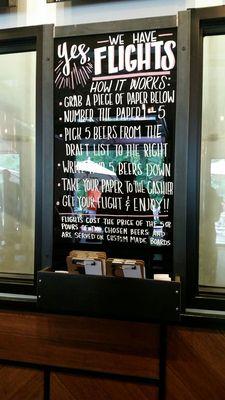 Yes, WE HAVE
FLIGHTS
HOW IT WORKS:
• GRAB A PIECE OF PAPER BELOW
• NUMBER THE PAPER 1-5
• PICK 5 BEERS FROM THE
DRAFT LIST TO THE RIGHT
• WRITE YOUR 5 BEERS DOWN
• TAKE YOUR PAPER TO THE CASHIER
• GET YOUR FLIGHT & ENJOY!!
FLIGHTS COST THE PRICE OF THE 5 OZ
POURS OF THE CHOSEN BEERS AND
ARE SERVED ON CUSTOM MADE BOARDS